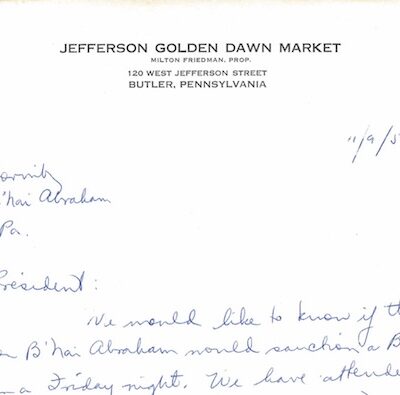 JEFFERSON GOLDEN DAWN MARKET
MILTON FRIEDMAN, PROP.
120 WEST JEFFERSON STREET
BUTLER, PENNSYLVANIA
11/9/5
B'nai Abraham
Pa.
President:
We would like to know if th
B'nai Abraham would sanction a B
a Friday night. We have attende